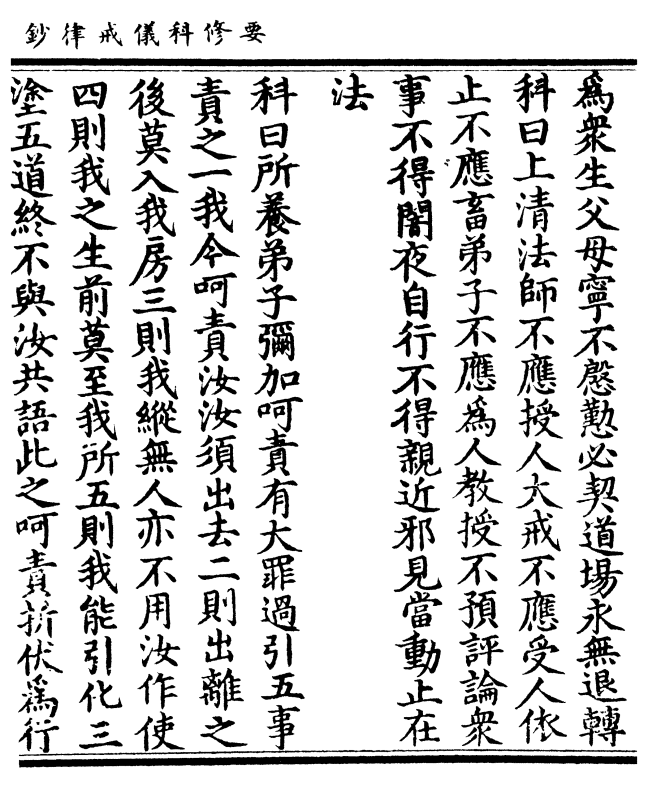 要修科儀戒律鈔
爲衆生父母寧不慇懃必契道場永無退轉
科曰上清法師不應授人大戒不應受人依
止不應畜弟子不應爲人教授不預評論衆
事不得闇夜自行不得親近邪見當動止在
法
科曰所養弟子彌加呵責有大罪過引五事
責之一我今呵責汝汝須出去二則出離之
後莫入我房三則我縱無人亦不用汝作使
四則我之生前莫至我所五則我能引化三
塗五道終不與汝共語此之呵責折伏爲行